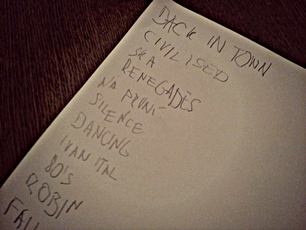 BACK IN TOWN
CIVILISED
SKA
RENEGADES
NA PRINC
SILENCE
DANCING
IVAN ITAL
80'S
ROBIN